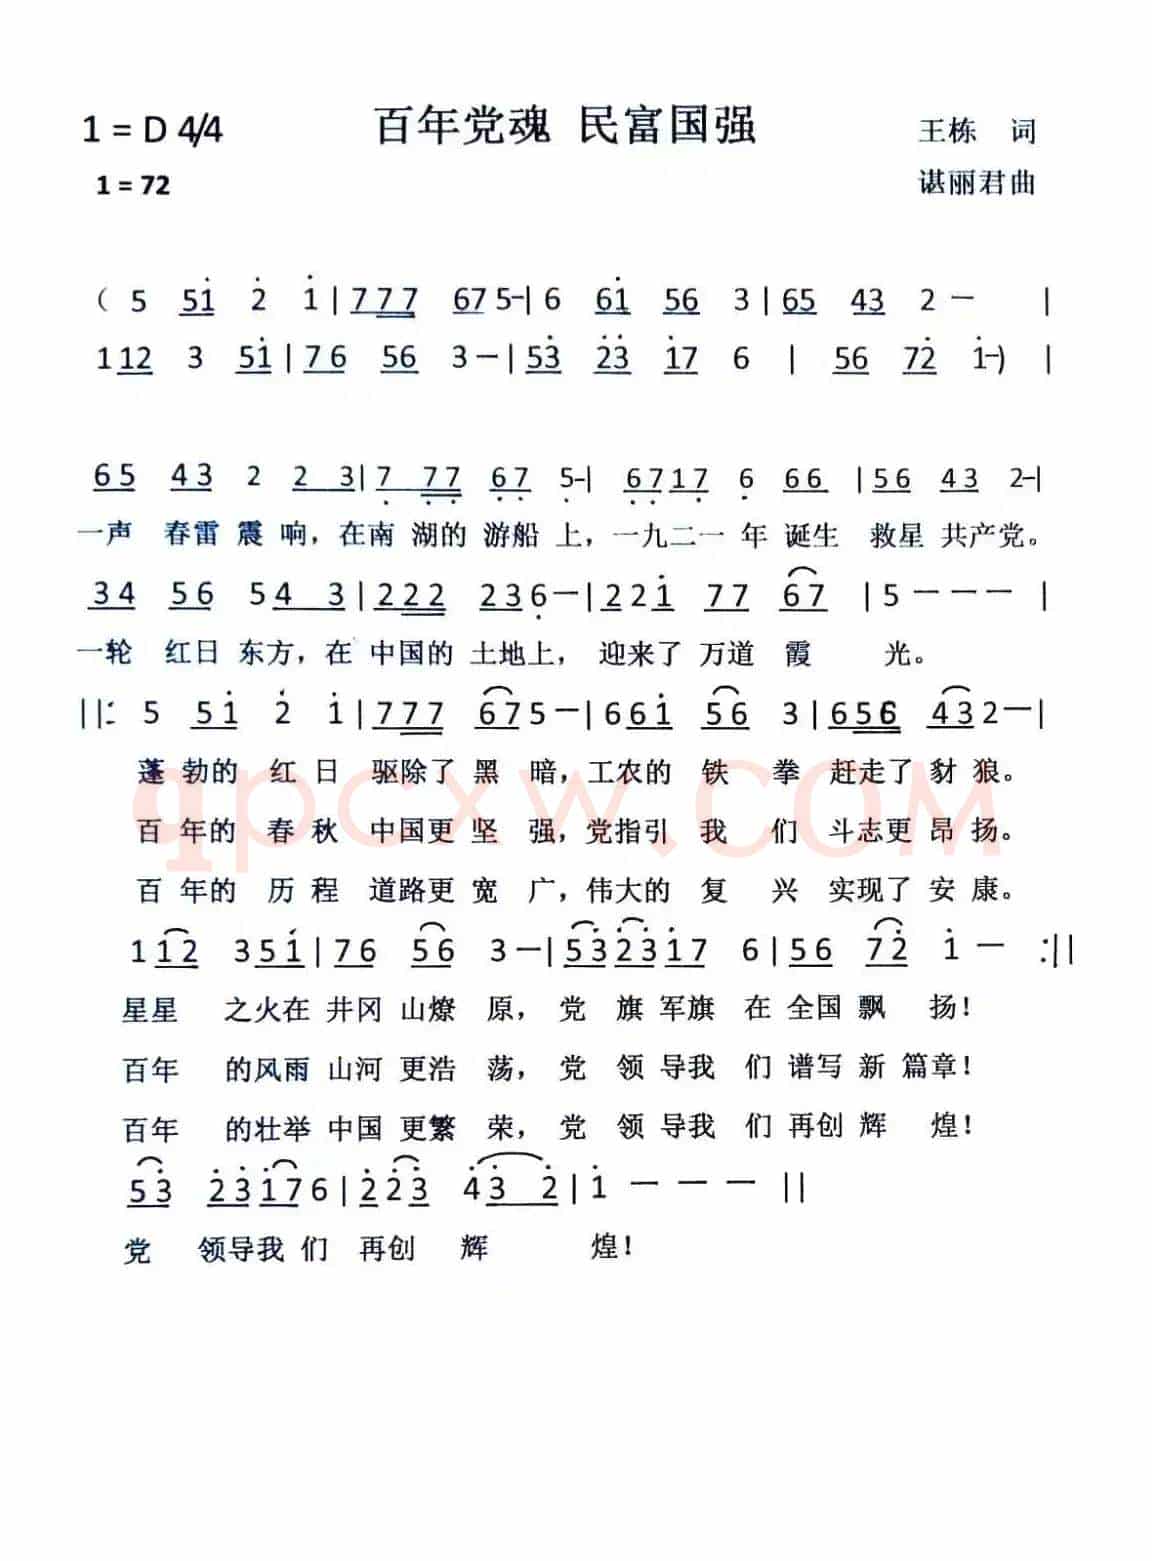 1 = D 4/4 百年党魂 民富国强 王栋 词
1 = 72 谌丽君曲
( 5 51̇ 2̇ 1̇ | 777 67 5-| 6 61̇ 56 3 | 65 43 2 — |
1 12 3 51̇ | 76 56 3 — | 53̇ 2̇3̇ 1̇7 6 | 56 72̇ 1̇-) |
65 43 2 2 3 | 7̣ 7̣7̣ 6̣7̣ 5̣-| 6̣7̣17̣ 6̣ 66 | 56 43 2-|
一声 春雷 震 响，在南 湖的 游船 上，一九二一 年 诞生 救星 共产党。
34 56 54 3 | 222 236̣ — | 221̇ 77 67 | 5 — — — |
一轮 红日 东方，在 中国的 土地上， 迎来了 万道 霞 光。
||: 5 51̇ 2̇ 1̇ | 777 67 5 — | 661̇ 56 3 | 656 43 2 — |
蓬 勃的 红 日 驱除了 黑 暗，工农的 铁 拳 赶走了 豺 狼。
qpcxw.COM
百 年的 春 秋 中国更 坚 强，党指引 我 们 斗志更 昂 扬。
百 年的 历 程 道路更 宽 广，伟大的 复 兴 实现了 安 康。
1 12 3 51̇ | 76 56 3 — | 53̇ 2̇3̇ 1̇7 6 | 56 72̇ 1̇ — :||
星星 之火在 井冈 山燎 原， 党 旗 军旗 在 全国 飘 扬！
百年 的风雨 山河 更浩 荡， 党 领 导我 们 谱写 新 篇章！
百年 的壮举 中国 更繁 荣， 党 领 导我 们 再创 辉 煌！
53̇ 2̇3̇ 1̇7 6 | 2̇2̇3̇ 4̇3̇ 2̇ | 1̇ — — — ||
党 领导我 们 再创 辉 煌！